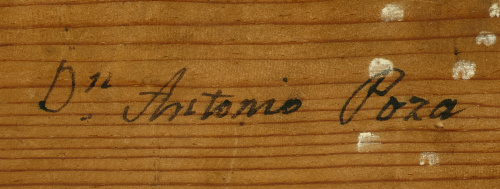 Dn Antonio Poza